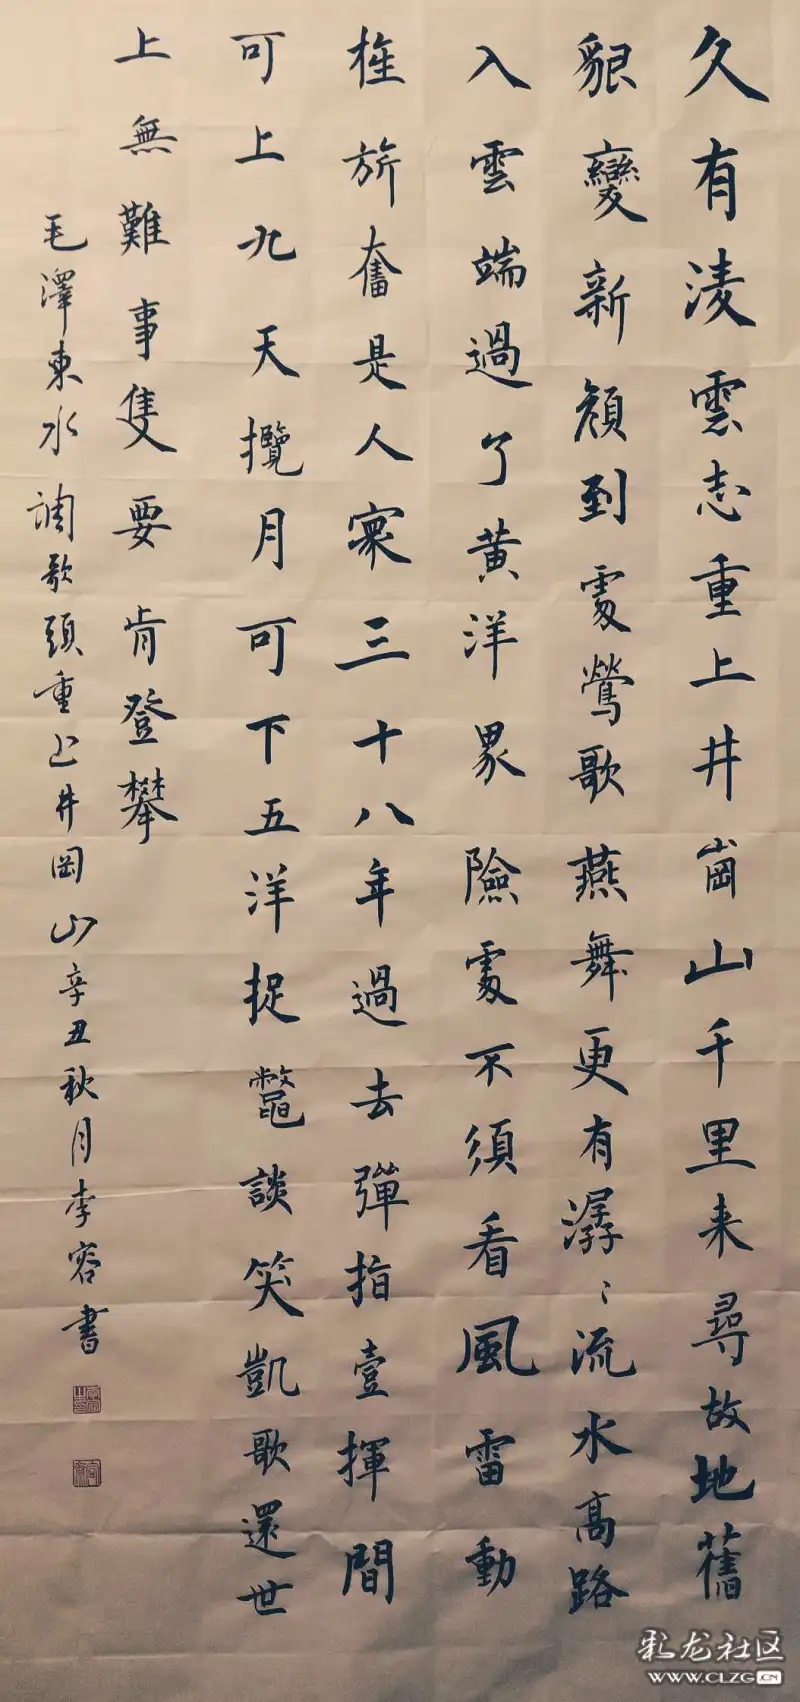 久有淩雲志重上井崗山千里来尋故地舊
貌變新顔到處鶯歌燕舞更有潺〻流水高路
入雲端過了黄洋界險處不須看風雷動
旌旂奮是人寰三十八年過去彈指壹揮間
可上九天攬月可下五洋捉鼈談笑凱歌還世
上無難事隻要肯登攀
毛澤東水調歌頭重上井岡山辛丑秋月李容書
彩龙社区
WWW.CLZG.CN